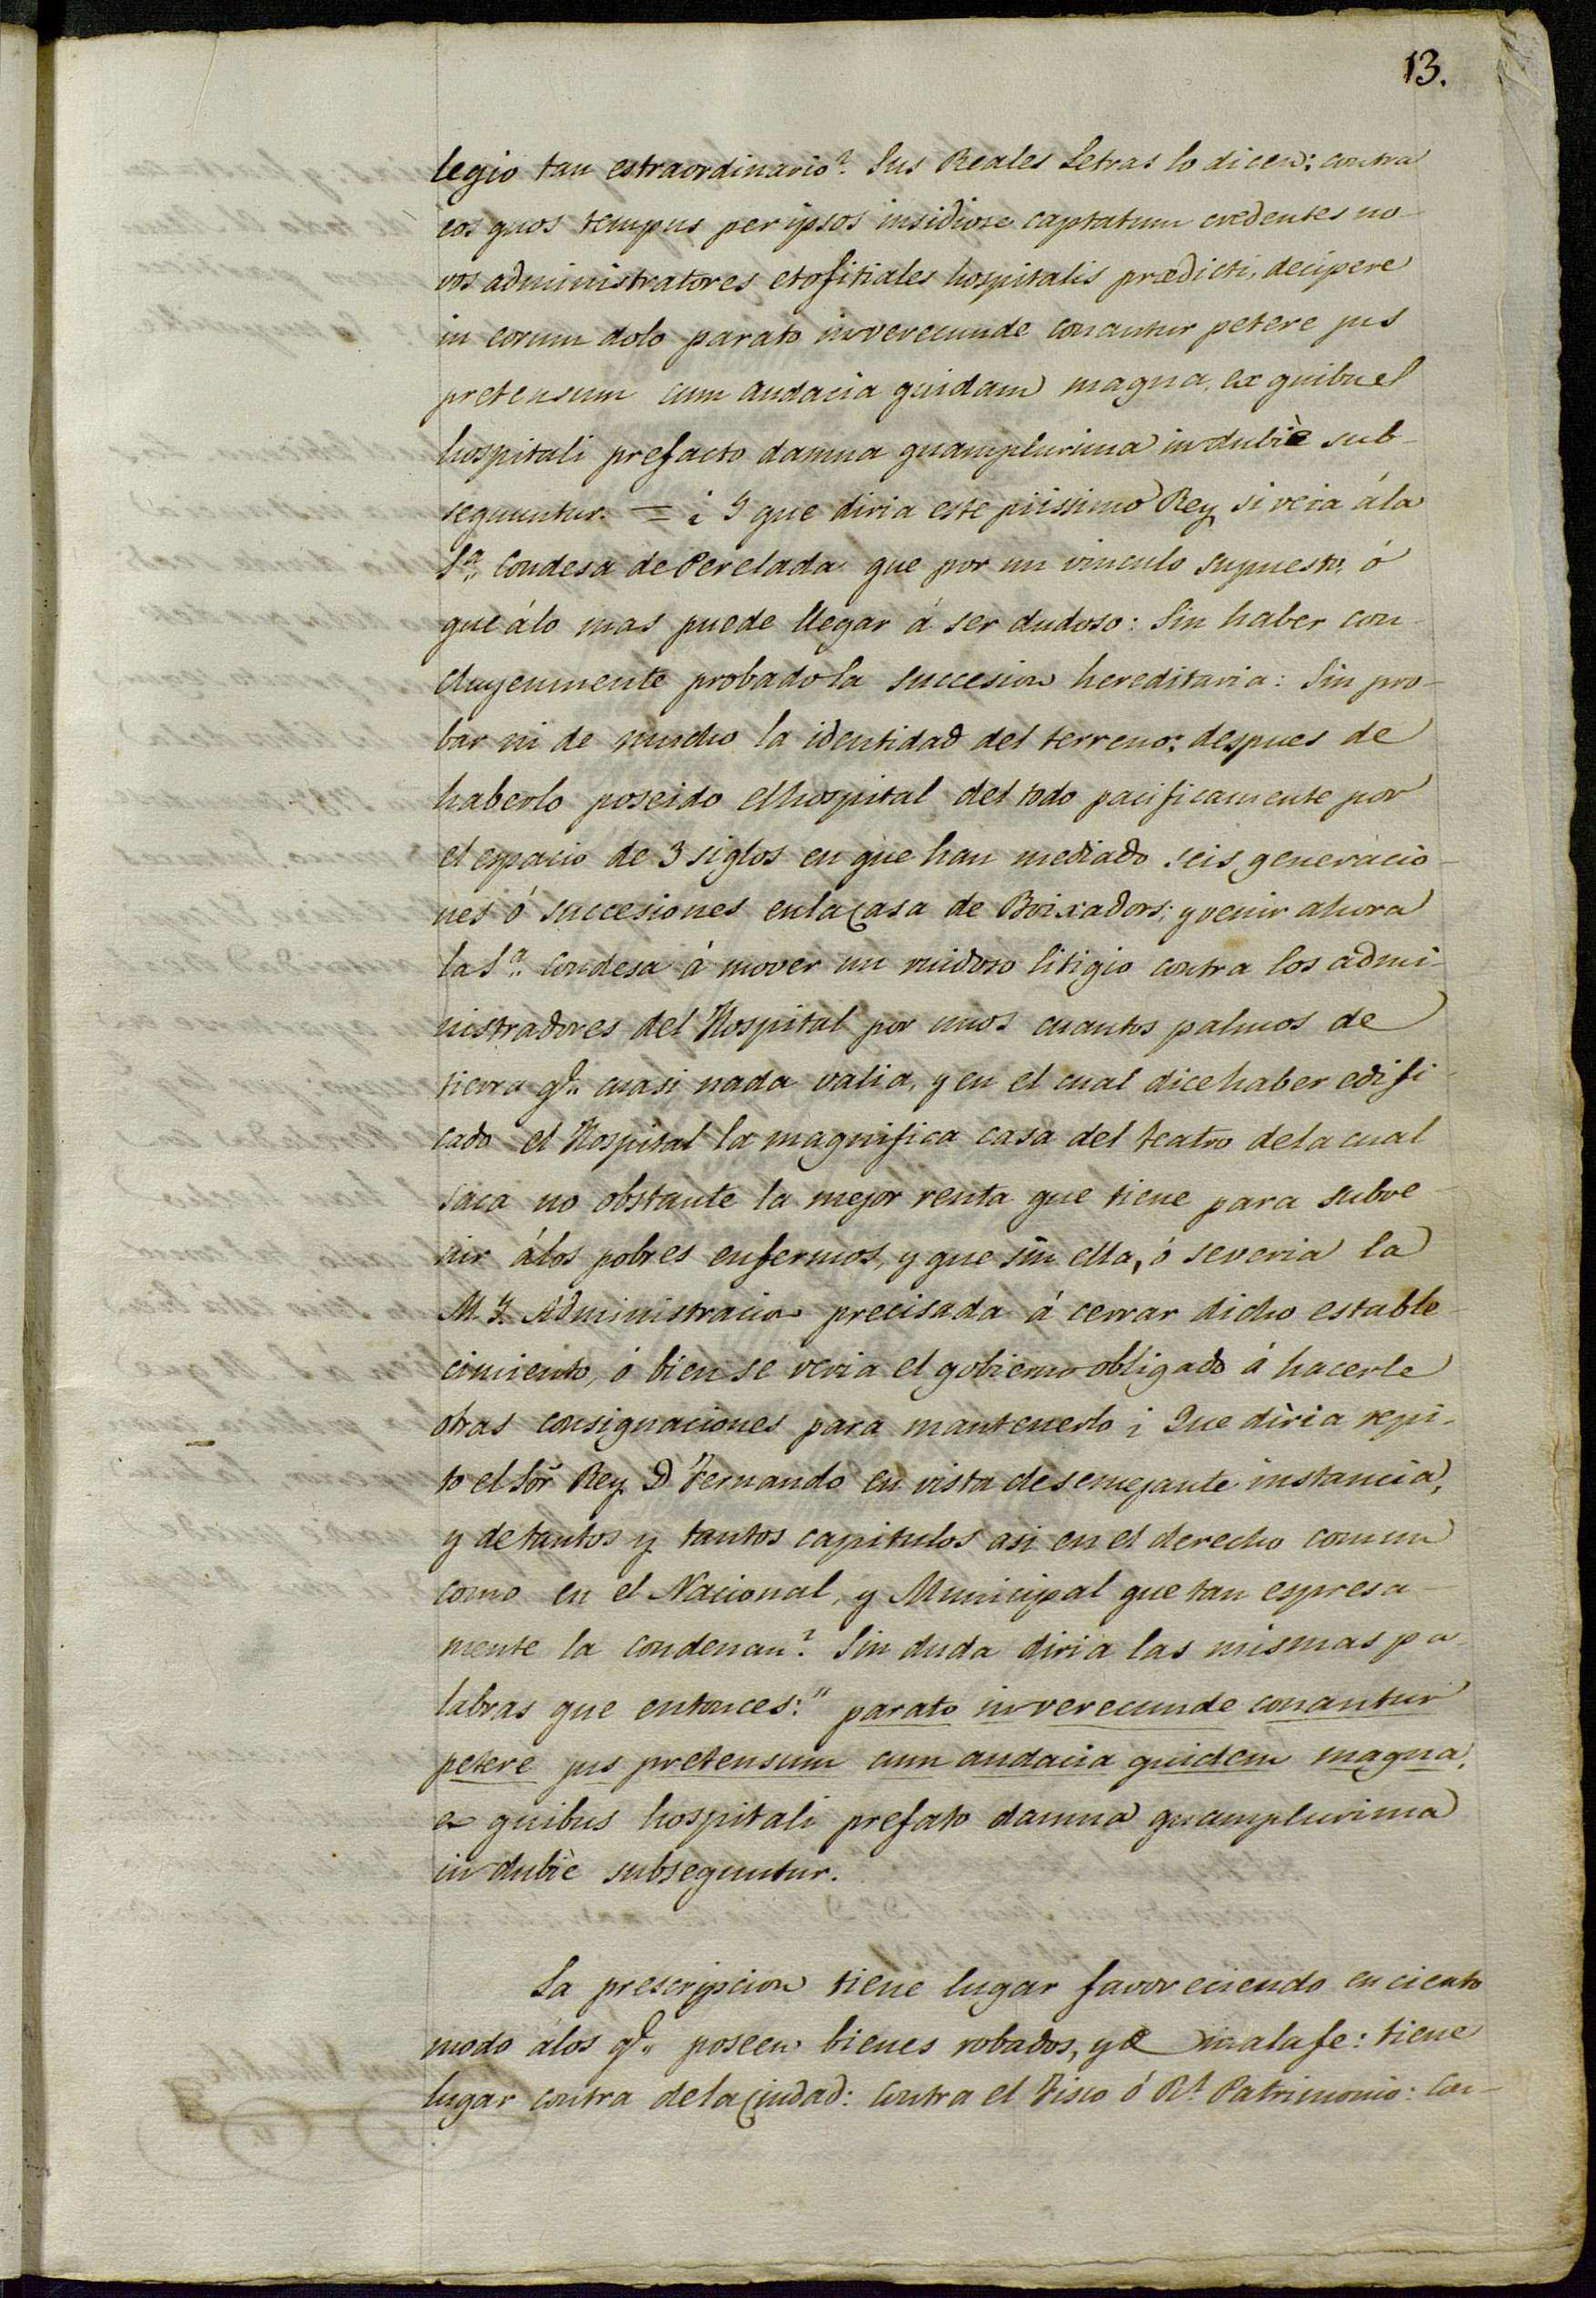 13.
legio tan estraordinario? Sus Reales Letras lo dicen: contra
eos quos tempus per ipsos insidiose captatum credentes no-
vos administratores et ofitiales hospitalis prædicti, decipere
in eorum dolo parato inverecunde conantur petere jus
pretensum cum audacia quidam magna, ex quibuel
hospitali prefacto damna quamplurima indubiè sub-
sequuntur. = ¿ Y que diria este piissimo Rey si veia á la
Sª. Condesa de Perelada que por un vinculo supuesto, ó
que álo mas puede llegar á ser dudoso: Sin haber con-
cluyenmente probado la succesion hereditaria: Sin pro-
bar ni de mucho la identidad del terreno: despues de
haberlo poseido el hospital del todo pacificamente por
el espacio de 3 siglos en que han mediado seis generacio-
nes ó succesiones en la Casa de Boixadors; y venir ahora
la Sª. Condesa á mover un ruidoso litigio contra los admi-
nistradores del Hospital por unos cuantos palmos de
tierra qe. cuasi nada valia, y en el cual dice haber edifi-
cado el Hospital la magnifica casa del teatro de la cual
saca no obstante la mejor renta que tiene para subve-
nir álos pobres enfermos, y que sin ella, ó se veria la
M. Y. Administracion precisada á cerrar dicho estable-
cimiento, ó bien se veria el gobierno obligado á hacerle
otras consignaciones para mantenerlo ¿ Que diria repi-
to el Sor. Rey Dn Fernando en vista de semejante instancia,
y de tantos y tantos capitulos asi en el derecho comun
como en el Nacional, y Municipal que tan espresa-
mente la condenan? Sin duda diria las mismas pa-
labras que entonces: " parato inverecunde conantur
petere jus pretensum cum audacia quidem magna,
ex quibus hospitali prefato damna quamplurima
indubiè subsequntur.
La prescripcion tiene lugar favoreciendo en ciento
modo álos qe. poseen bienes robados, y de mala fe: tiene
lugar contra de la Ciudad: Contra el Fisco ó Rl. Patrimonio: Con-